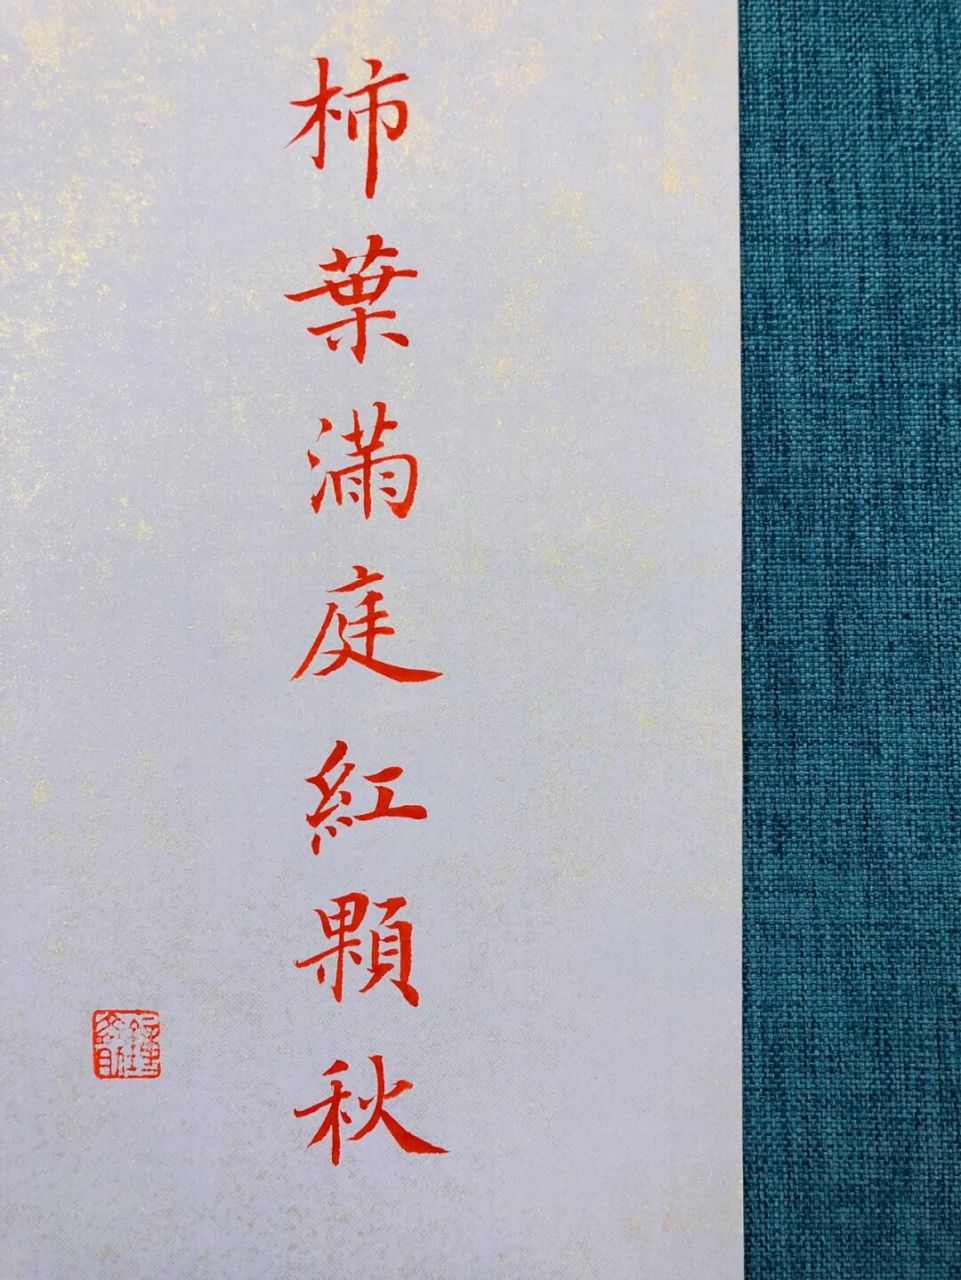 柿葉滿庭紅顆秋